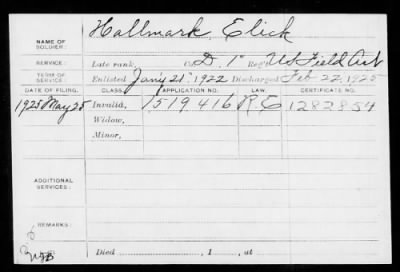 NAME OF SOLDIER: Hallmark, Elick
SERVICE: Late rank, Co. D, 1" Reg't US Field Art
TERM OF SERVICE: Enlisted Jan'y 21", 1922 Discharged Feb 22, 1925
DATE OF FILING. CLASS. APPLICATION NO. LAW. CERTIFICATE NO.
1925 May 25 Invalid, 1519416 R E 1282854
Widow,
Minor,
ADDITIONAL SERVICES:
REMARKS:
Died , 1 , at